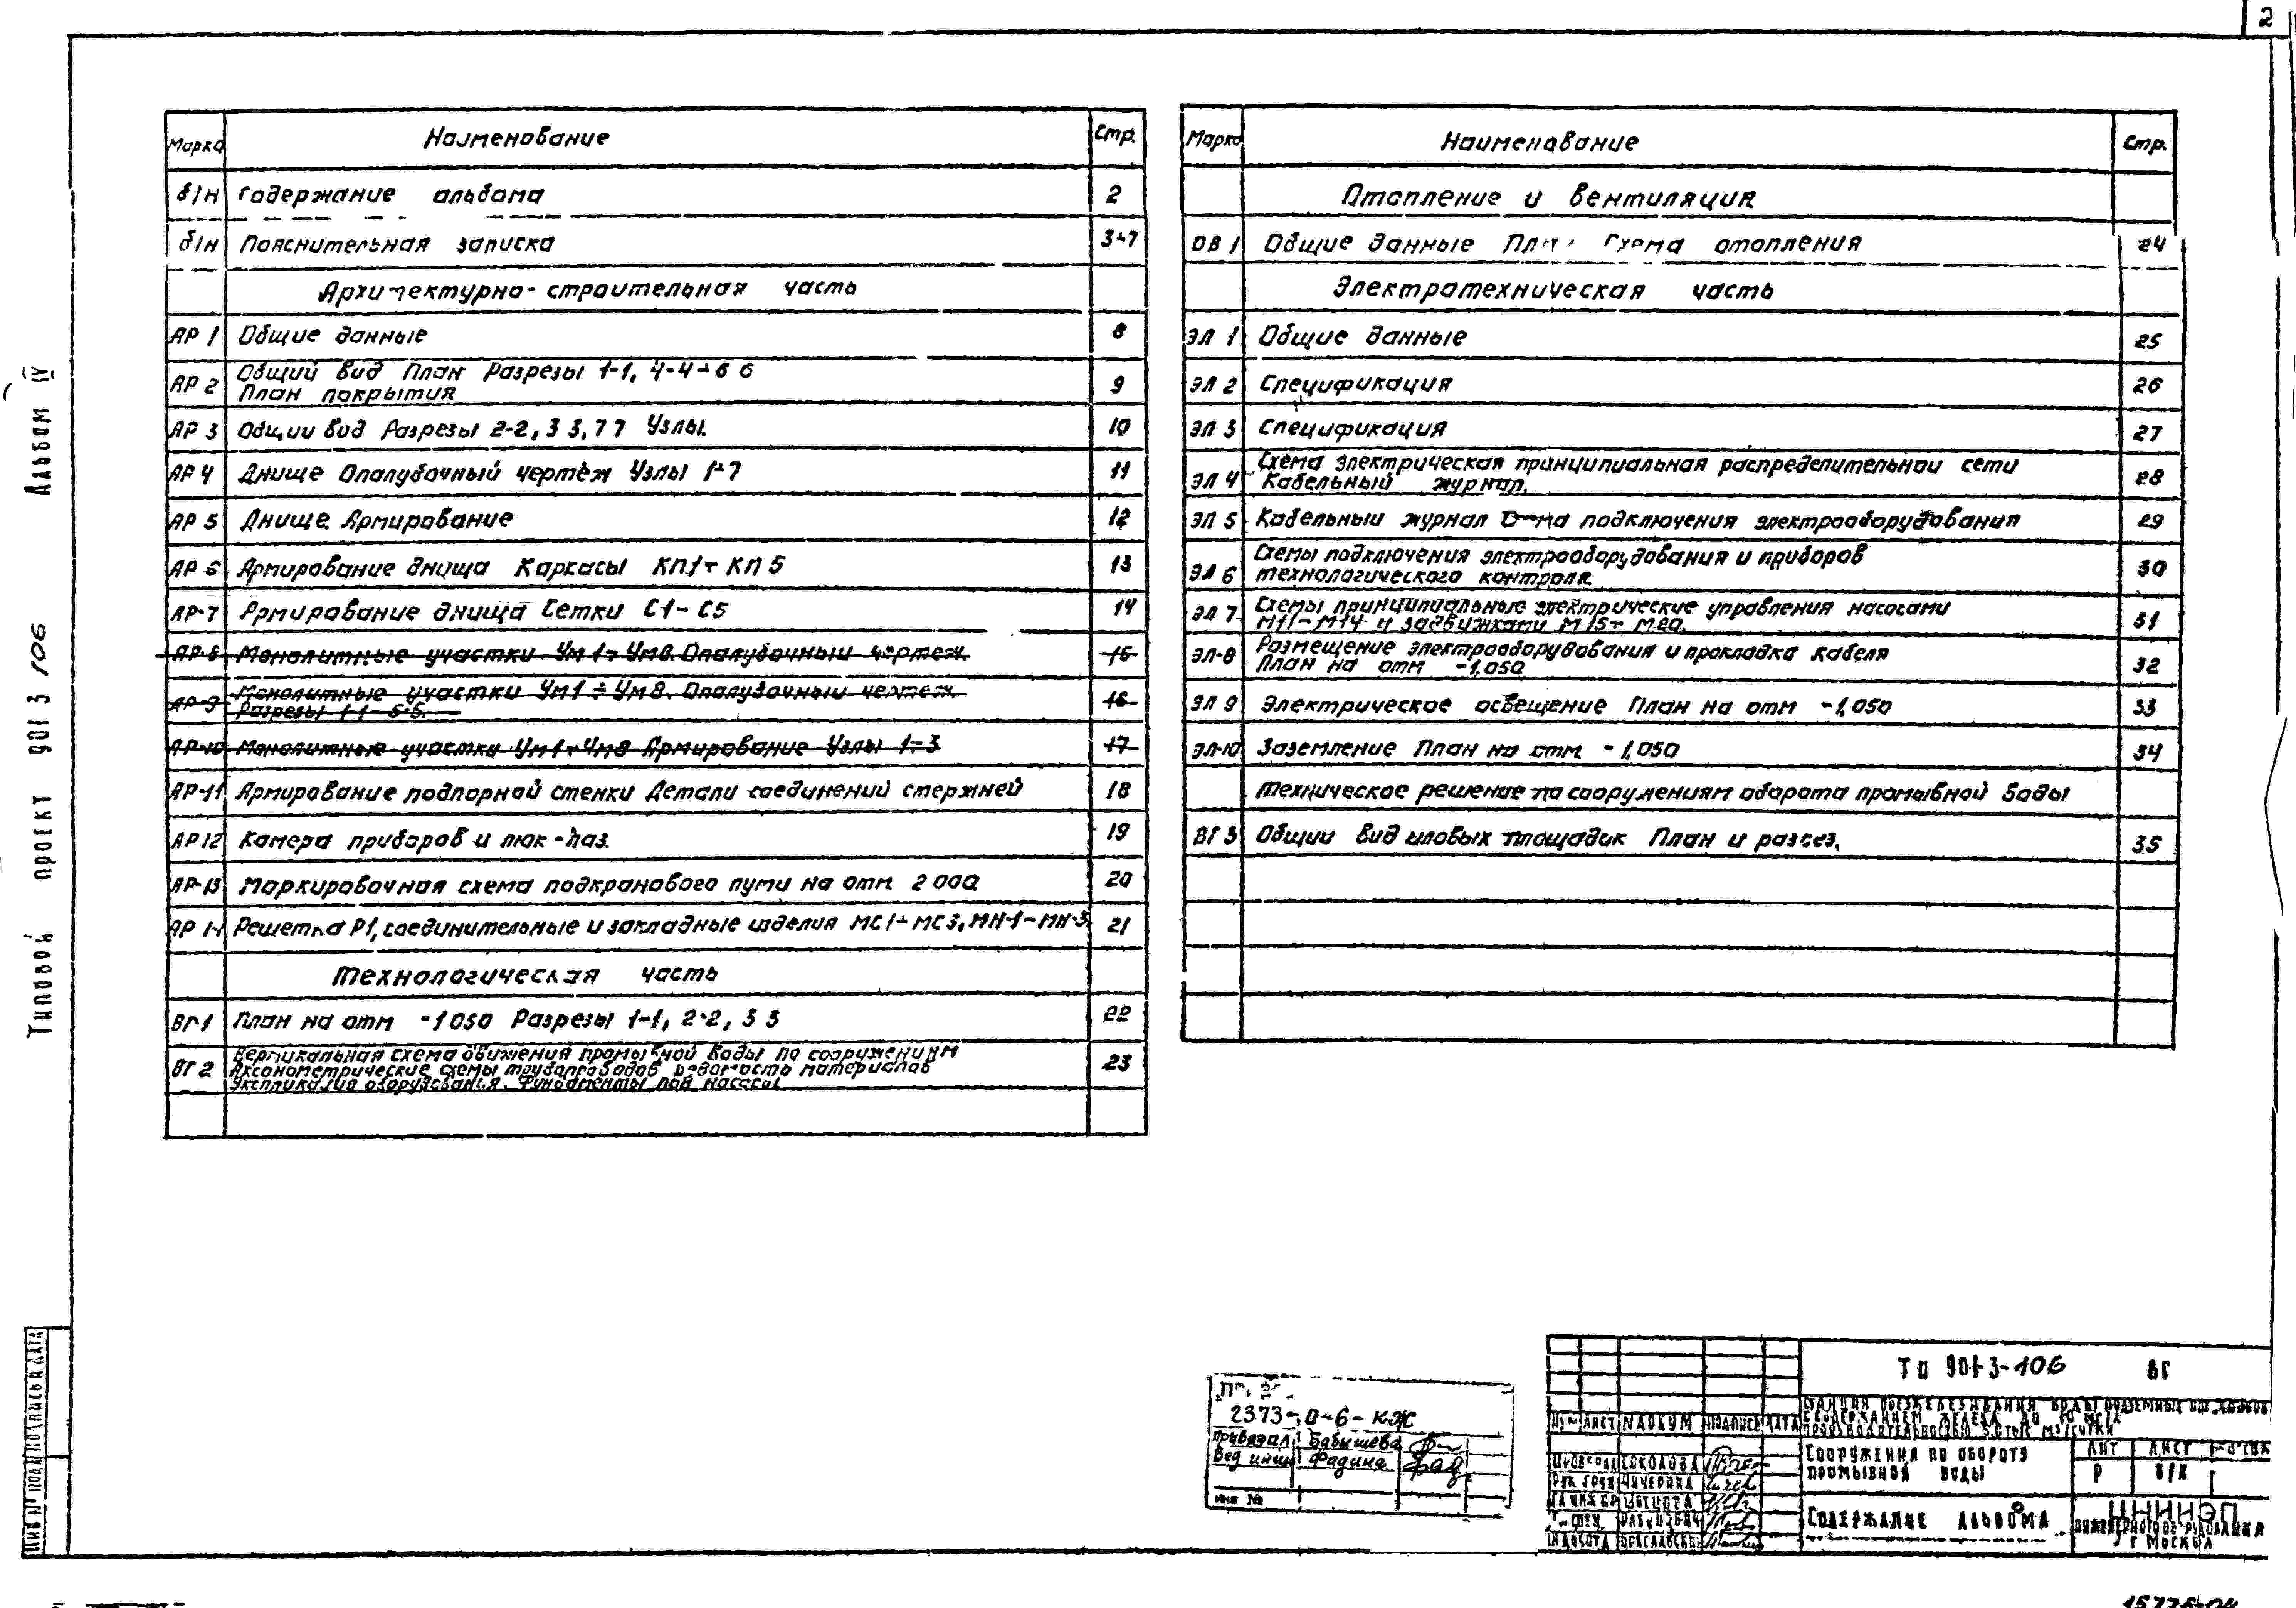 2
Типовой проект 901 3 106 Альбом IV
Марка Наименование Стр.
б/н Содержание альбома 2
б/н Пояснительная записка 3÷7
Архитектурно-строительная часть
АР 1 Общие данные 8
АР 2 Общий вид План Разрезы 1-1, 4-4÷6 6
План покрытия 9
АР 3 Общий вид Разрезы 2-2, 3 3, 7 7 Узлы. 10
АР 4 Днище Опалубочный чертёж Узлы 1÷7 11
АР 5 Днище. Армирование 12
АР 6 Армирование днища Каркасы КП1÷КП 5 13
АР-7 Армирование днища Сетки С1-С5 14
АР-8 Монолитные участки Ум 1÷Ум8 Опалубочный чертеж. 15
АР-9 Монолитные участки Ум1÷Ум8. Опалубочный чертеж.
Разрезы 1-1-5-5. 16
АР-10 Монолитные участки Ум1÷Ум8 Армирование Узлы 1÷3 17
АР-11 Армирование подпорной стенки Детали соединений стержней 18
АР 12 Камера приборов и люк-лаз. 19
АР-13 Маркировочная схема подкранового пути на отм 2 000 20
АР 14 Решетка Р1, соединительные и закладные изделия МС1÷МС3, МН-1-МН-3 21
Технологическая часть
ВГ1 План на отм -1 050 Разрезы 1-1, 2-2, 3 3 22
ВГ 2 Вертикальная схема движения промывной воды по сооружениям
Аксонометрические схемы трубопроводов Ведомость материалов
Экспликация оборудования. Фундаменты под насосы 23
Марка Наименование Стр.
Отопление и вентиляция
ОВ 1 Общие данные План Схема отопления 24
Электротехническая часть
ЭЛ 1 Общие данные 25
ЭЛ 2 Спецификация 26
ЭЛ 3 Спецификация 27
ЭЛ 4 Схема электрическая принципиальная распределительной сети
Кабельный журнал. 28
ЭЛ 5 Кабельный журнал Схема подключения электрооборудования 29
ЭЛ 6 Схемы подключения электрооборудования и приборов
технологического контроля. 30
ЭЛ 7 Схемы принципиальные электрические управления насосами
М11-М14 и задвижками М15÷М20. 31
ЭЛ-8 Размещение электрооборудования и прокладка кабеля
План на отм -1,050 32
ЭЛ 9 Электрическое освещение План на отм -1,050 33
ЭЛ-10 Заземление План на отм -1,050 34
Техническое решение по сооружениям оборота промывной воды
ВГ 3 Общий вид иловых площадок План и разрез. 35
2373-0-6-КЖ
Привязал Бабышева
Вед инж Фадина
инв №
ТП 901-3-106 ВГ
Станция обезжелезивания воды подземных источников
с содержанием железа до 10 мг/л
производительностью 5,0 тыс м3/сутки
Лист № докум Подпись Дата
Сооружения по обороту
промывной воды
Лит Лист Листов
Р б/н
Проверил Соколова
Содержание альбома
ЦНИИЭП
инженерного оборудования
г Москва
Инв № подл Подпись и дата
15776-04